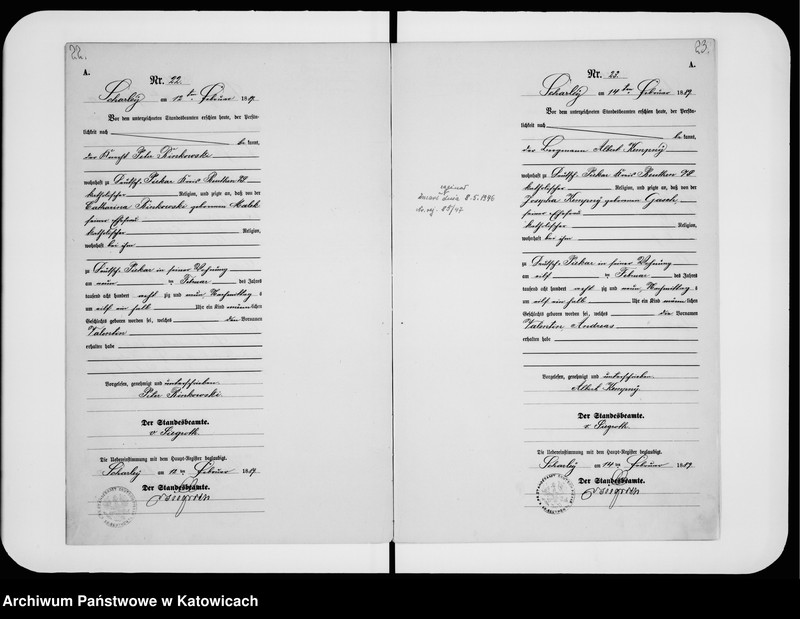 22.
A.
Nr. 22.
Scharley am 12 ten Februar 1889.
Vor dem unterzeichneten Standesbeamten erschien heute, der Persön-
lichkeit nach
be kannt,
der Knecht Peter Rinkowski
wohnhaft zu Deutsch Piekar Kreis Beuthen
katholischer Religion, und zeigte an, daß von der
Catharina Rinkowski geborenen
seiner Ehefrau
katholischer Religion,
wohnhaft bei ihm
zu Deutsch Piekar in seiner Wohnung
am neun Februar des Jahres
tausend acht hundert acht zig und neun, Nachmittag s
um elf ein halb Uhr ein Kind männ lichen
Geschlechts geboren worden sei, welches die Vornamen
Valentin
erhalten habe
Vorgelesen, genehmigt und unterschrieben
Peter Rinkowski
Der Standesbeamte.
v Siegroth
Die Uebereinstimmung mit dem Haupt-Register beglaubigt.
Scharley am 12 ten Februar 1889.
Der Standesbeamte.
v Siegroth
zmarł dnia 8.5.1946
23.
A.
Nr. 23.
Scharley am 14 ten Februar 1889.
Vor dem unterzeichneten Standesbeamten erschien heute, der Persön-
lichkeit nach
be kannt,
der Bergmann Albert Kempny
wohnhaft zu Deutsch Piekar Kreis Beuthen
katholischer Religion, und zeigte an, daß von der
Josepha Kempny geborenen
seiner Ehefrau
katholischer Religion,
wohnhaft bei ihm
zu Deutsch Piekar in seiner Wohnung
am elf Februar des Jahres
tausend acht hundert acht zig und neun, Nachmittag s
um elf ein halb Uhr ein Kind männ lichen
Geschlechts geboren worden sei, welches die Vornamen
Valentin Andreas
erhalten habe
Vorgelesen, genehmigt und unterschrieben
Albert Kempny
Der Standesbeamte.
v Siegroth
Die Uebereinstimmung mit dem Haupt-Register beglaubigt.
Scharley am 14 ten Februar 1889.
Der Standesbeamte.
v Siegroth
Archiwum Państwowe w Katowicach